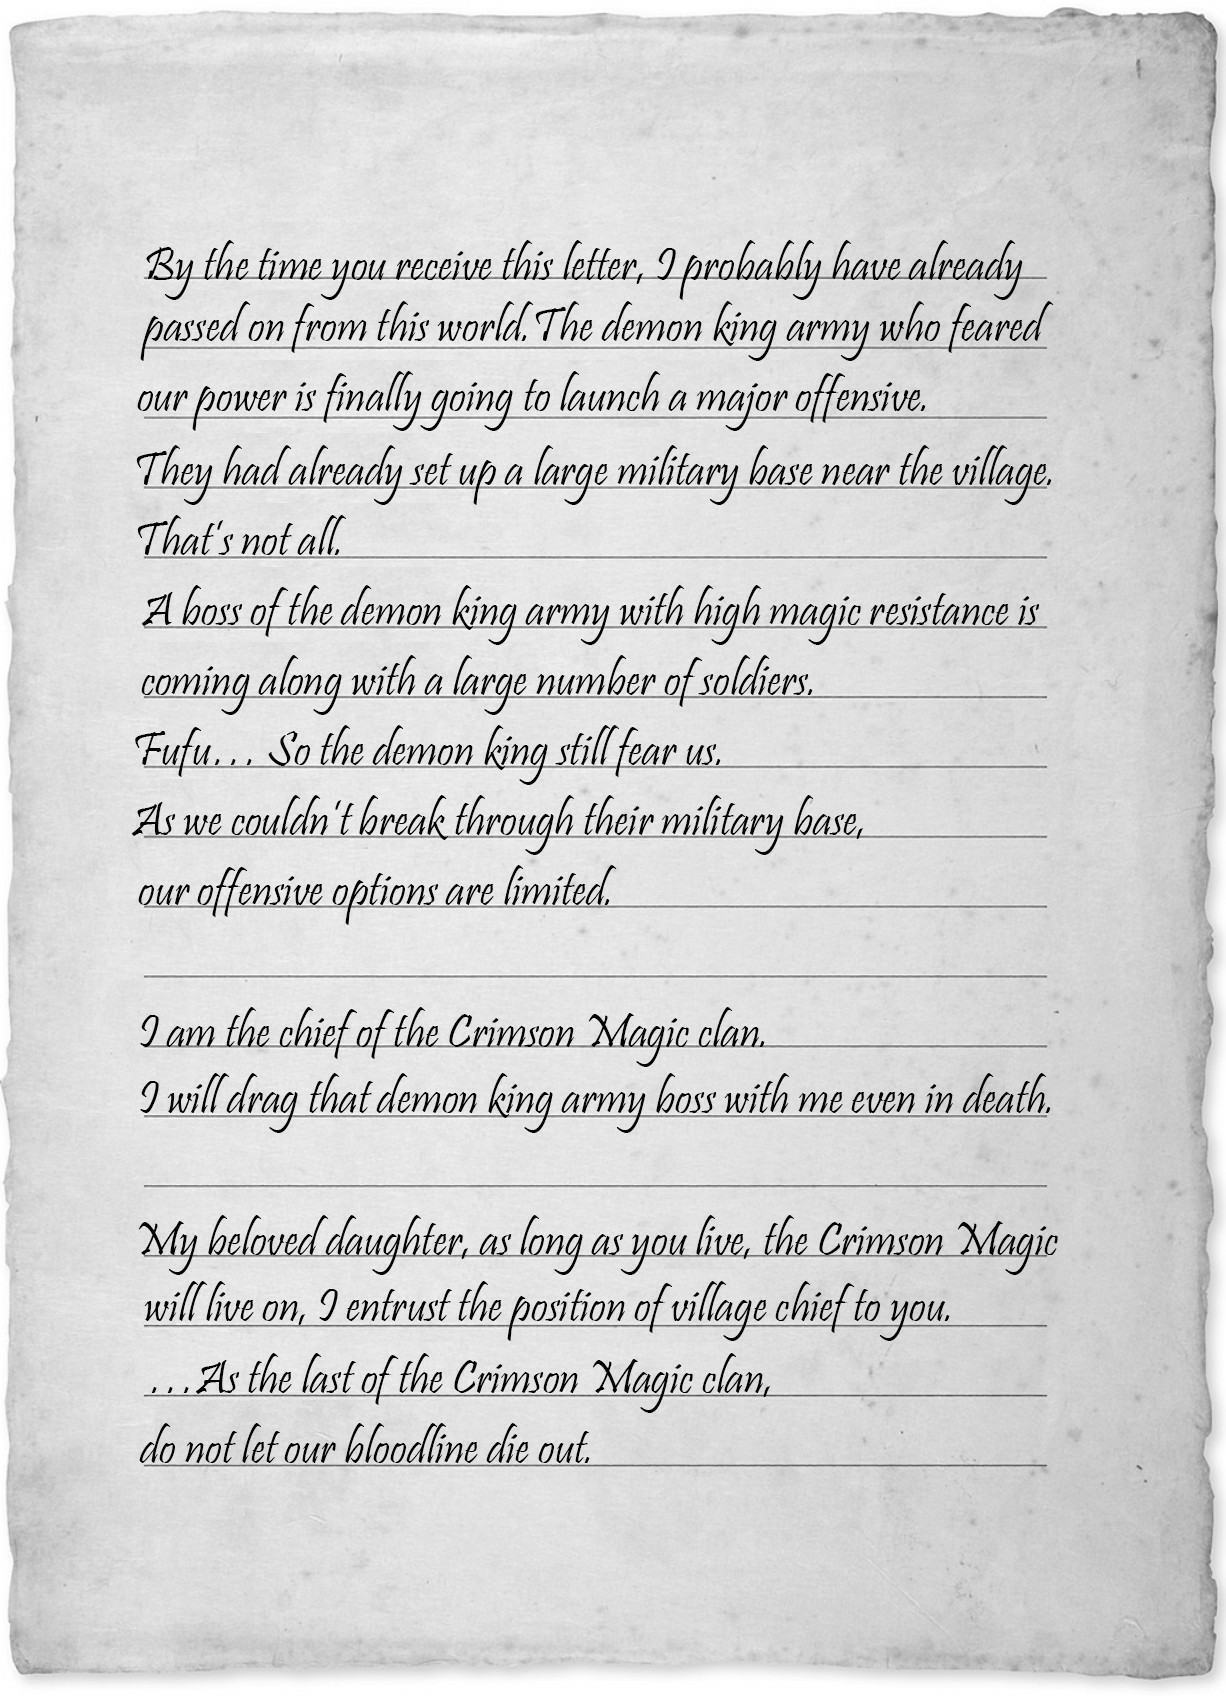 By the time you receive this letter, I probably have already
passed on from this world. The demon king army who feared
our power is finally going to launch a major offensive.
They had already set up a large military base near the village.
That's not all.
A boss of the demon king army with high magic resistance is
coming along with a large number of soldiers.
Fufu... So the demon king still fear us.
As we couldn't break through their military base,
our offensive options are limited.
I am the chief of the Crimson Magic clan.
I will drag that demon king army boss with me even in death.
My beloved daughter, as long as you live, the Crimson Magic
will live on, I entrust the position of village chief to you.
...As the last of the Crimson Magic clan,
do not let our bloodline die out.